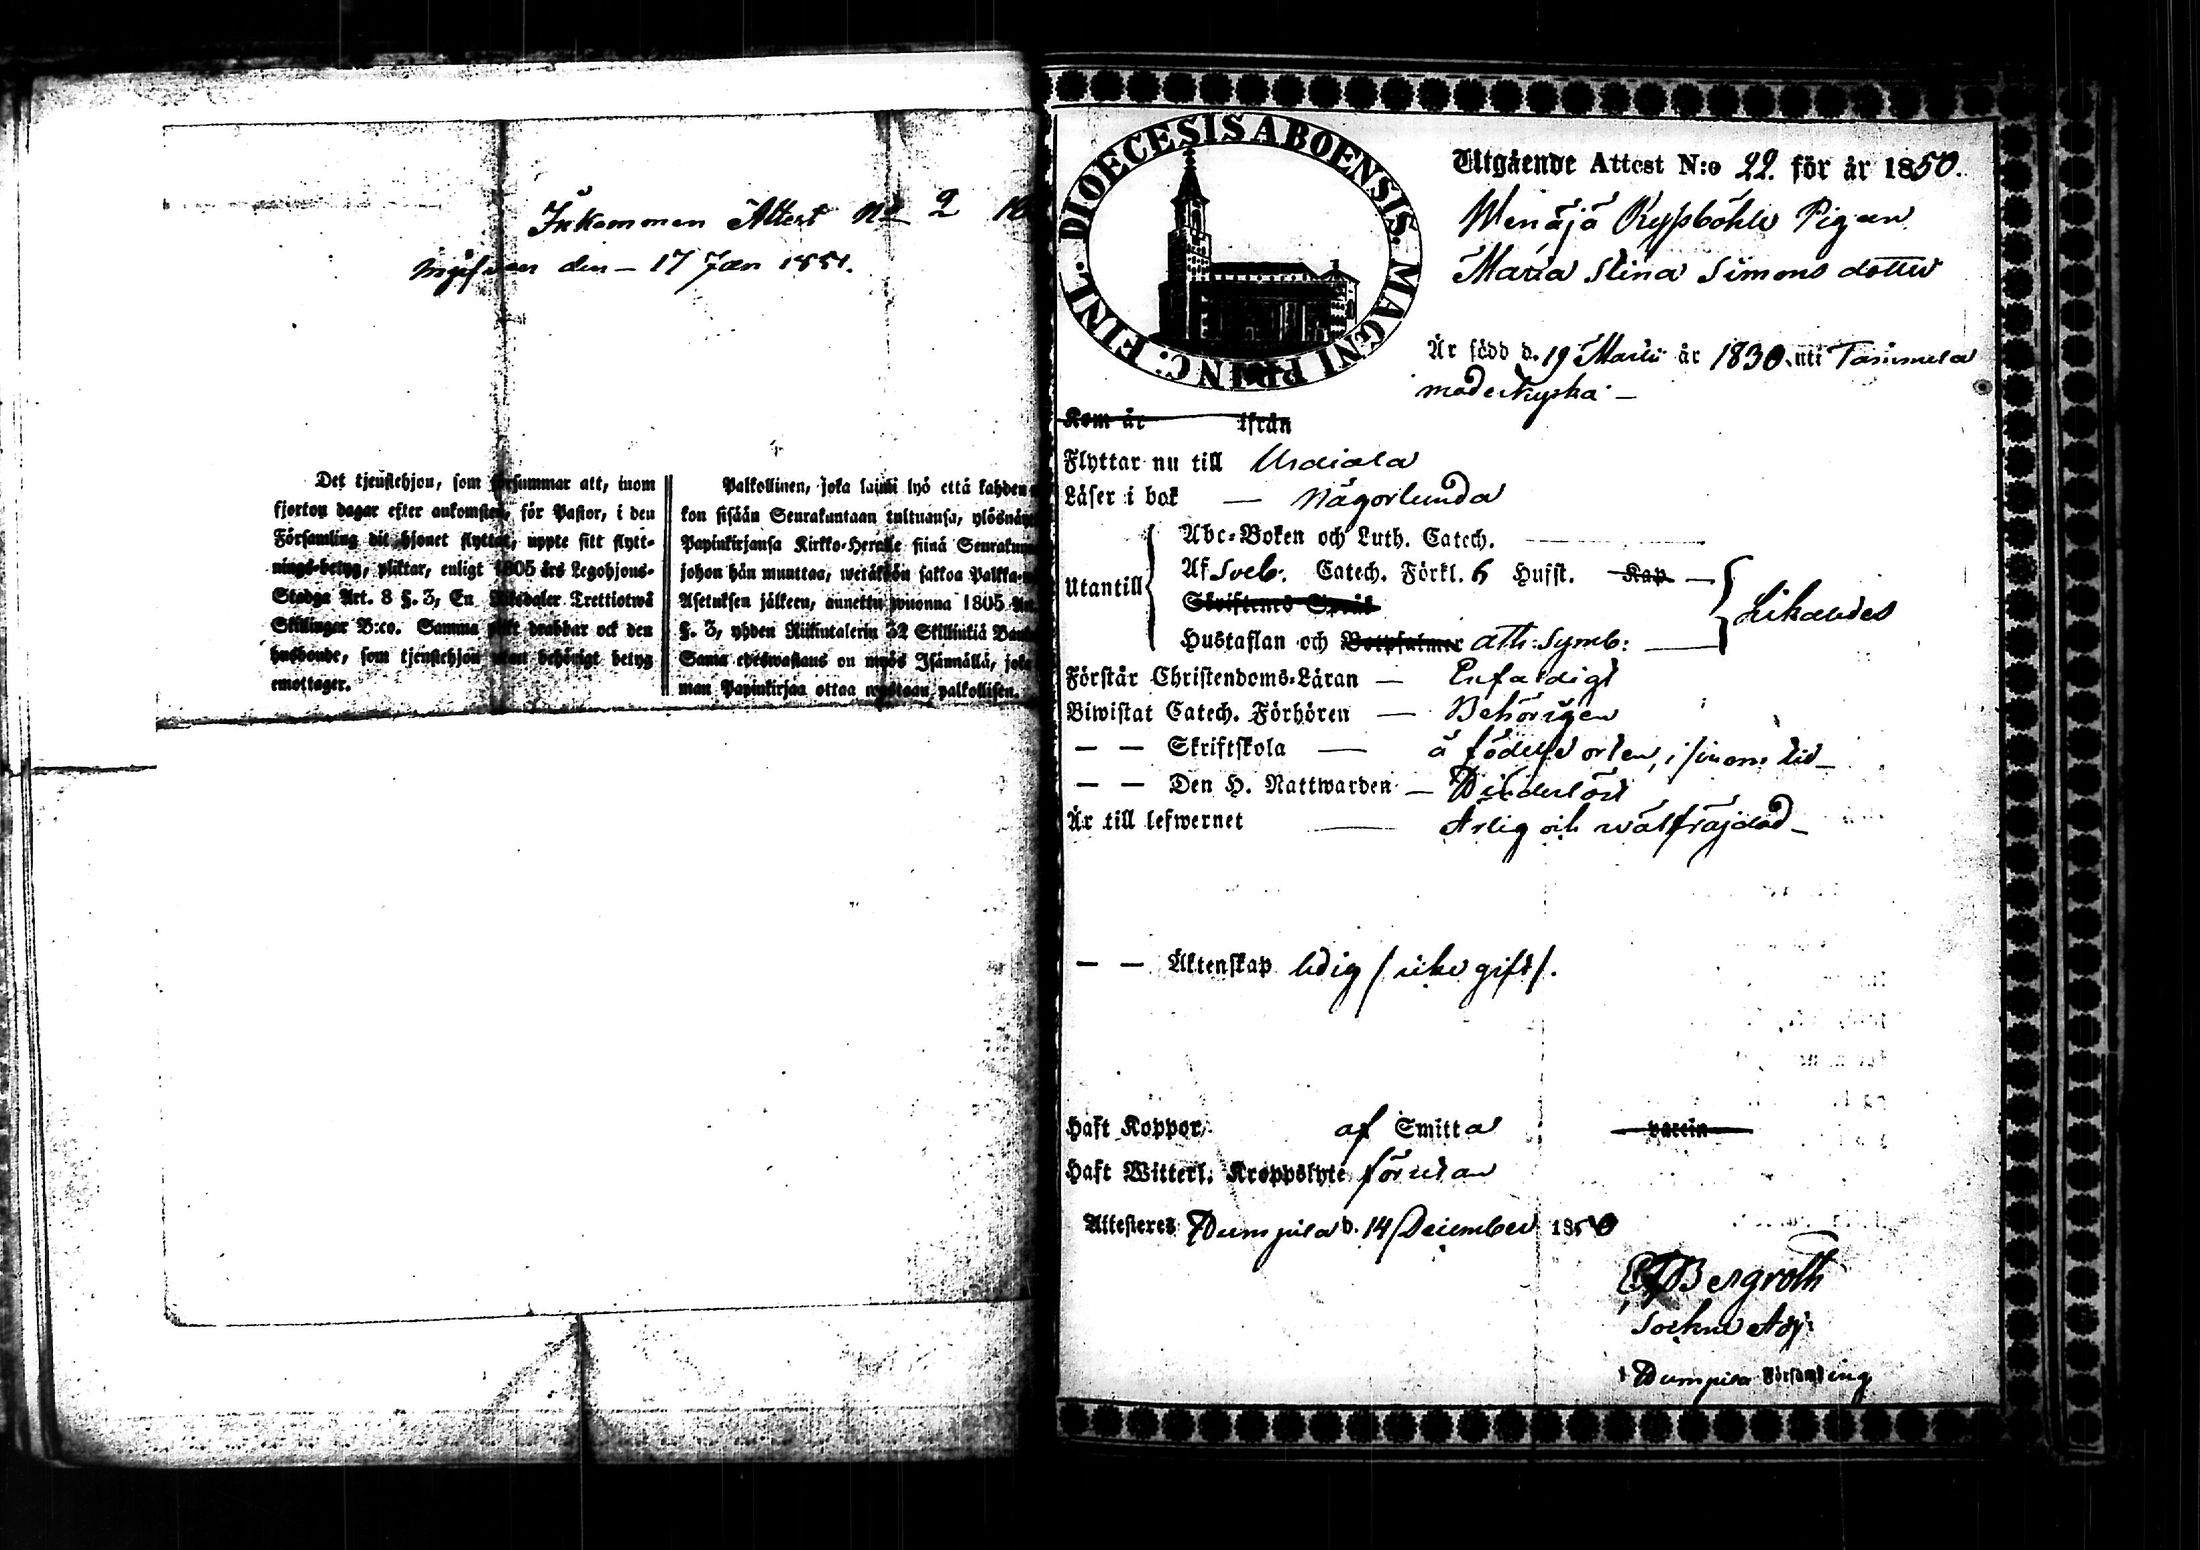 Inkommen Attest No 2 18
ingifven den – 17 Jan 1851.
Det tjenstehjon, som försummar att, inom
fjorton dagar efter ankomsten, för Pastor, i den
Församling dit hjonet flyttat, uppte sitt flytt-
nings-betyg, pliktar, enligt 1805 års Legohjons-
Stadga Art. 8 §. 3, En Riksdaler Trettiotwå
Skillingar B:co. Samma plikt drabbar ock den
husbonde, som tjenstehjon utan behörigt betyg
emottager.
Palkollinen, joka laimi lyö että kahden
kon sisään Seurakuntaan tultuansa, ylösnäyt
Papinkirjansa Kirkko-Herralle siinä Seurakun
johon hän muuttaa, wetäköön sakkoa Palkka
Asetuksen jälkeen, annettu wuonna 1805 Ar
§. 3, yhden Riikintalerin 32 Skillinkiä Banko
Sama edeswastaus on myös Isännällä, joka
man Papinkirjaa ottaa wastaan palkollisen.
DIOECESIS ABOENSIS. MAGNI PRINC: FINL.
Utgående Attest N:o 22. för år 1850.
Pigan
Maria Stina Simons dotter
Är född d. 19 Martii år 1830. uti Tammela
moderkyrka –
Kom år ifrån
Flyttar nu till Urdiala
Läser i bok — någorlunda
Abc-Boken och Luth. Catech.
Utantill
Af Sveb. Catech. Förkl. 6 Hufst. Kap —
Skriftenes Språk
Likaledes
Hustaflan och Botpsalmer ath: Symb: —
Förstår Christendoms-Läran — Enfaldigt
Biwistat Catech. Förhören — Behörigen
— — Skriftskola — å födelse orten, i sinom tid –
— — Den H. Nattwarden —
Är till lefwernet — Ärlig och wälfräjdad –
— — Äktenskap ledig / icke gift /.
Haft Koppor af Smitta
Haft Witterl. Kroppslyte förutan
Attesteres d. 14 December 1850
Bergroth
Sockne Adj:
Församling